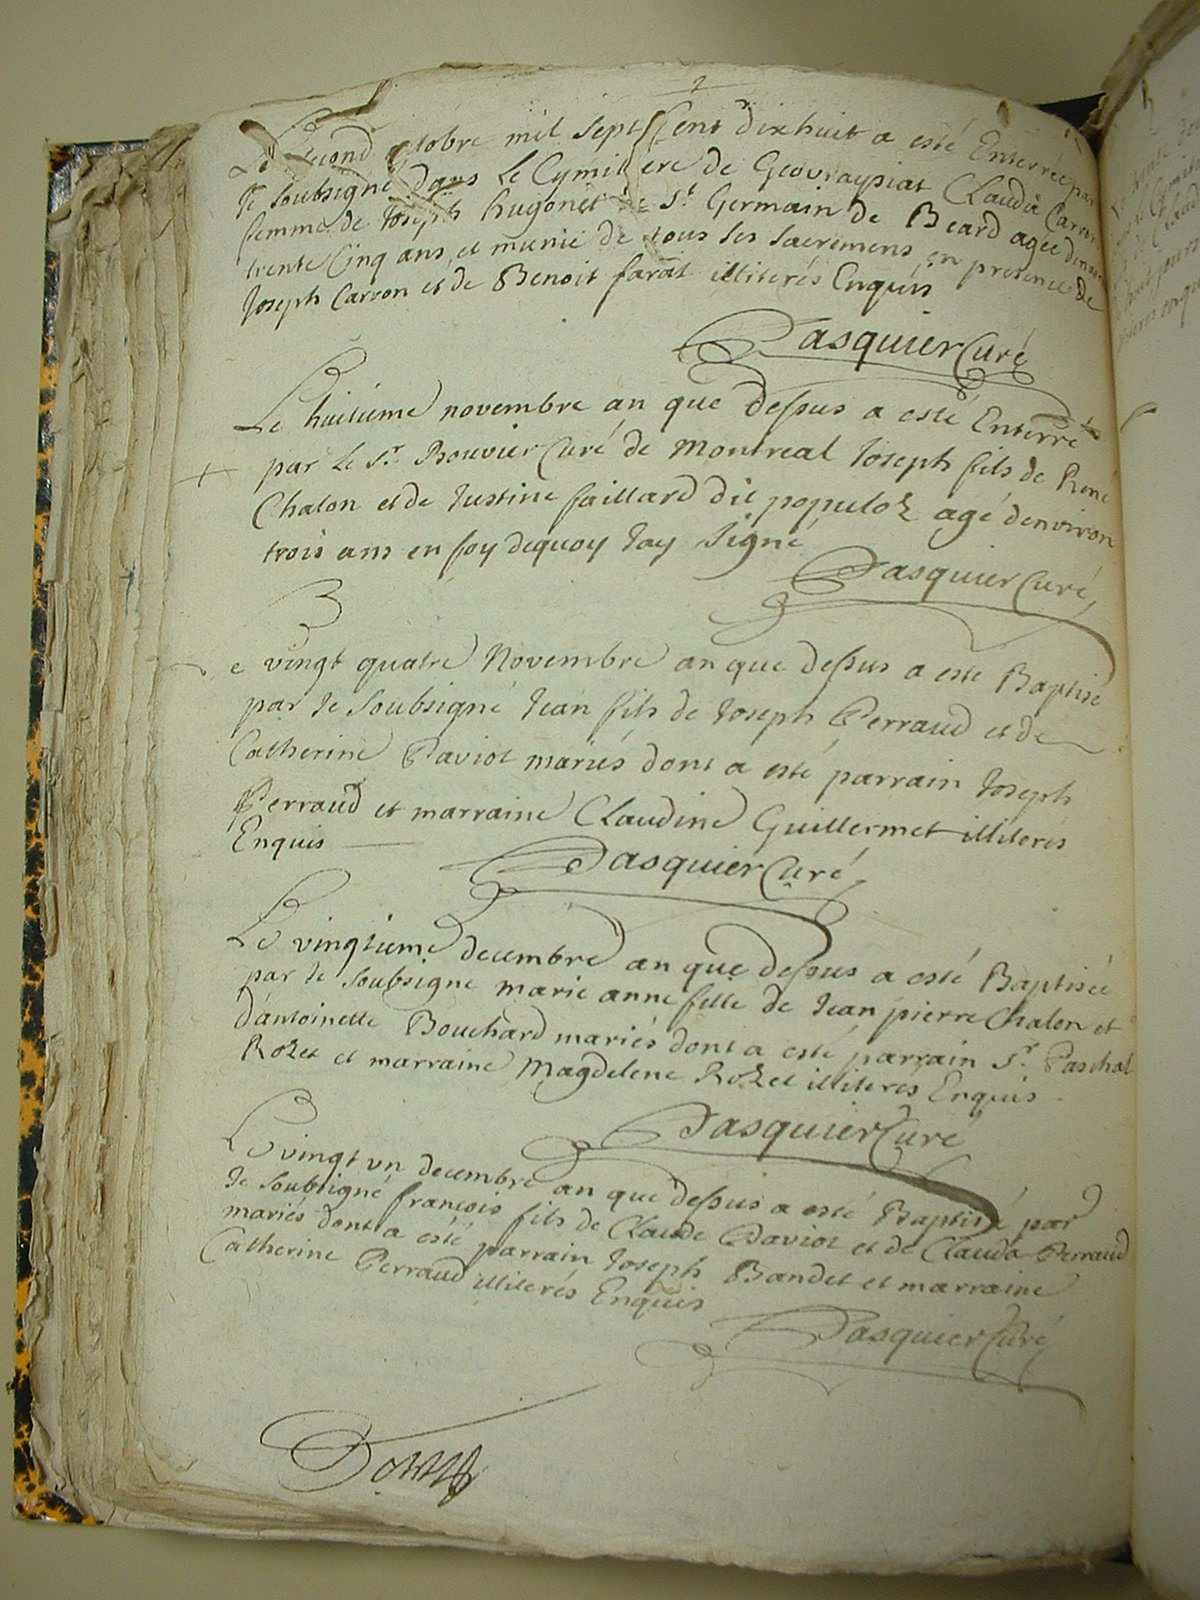 2
Le second octobre mil sept Cent dixhuit a esté Enterrée par
Je soubsigné dans Le Cymitiere de Geovraysiat Claudia Carron
femme de Joseph hugonet de St Germain de Beard agée denviron
trente Cinq ans et munie de tous ses sacremens en presence de
Joseph Carron et de Benoit farat illiterés Enquis
Pasquier Curé
Le huitieme novembre an que dessus a esté Enterré
par Le Sr. Bouvier Curé de Montreal Joseph fils de René
Chalon et de Justine faillard dit populoz agé denviron
trois ans en foy dequoy Jay signé
Pasquier Curé
e vingt quatre Novembre an que dessus a esté Baptisé
par Je soubsigné Jean fils de Joseph Perraud et de
Catherine Daviot mariés dont a esté parrain Joseph
Perraud et marraine Claudine Guillermet illiterés
Enquis
Pasquier Curé
Le vingtieme decembre an que dessus a esté Baptisée
par Je soubsigne marie anne fille de Jean pierre Chalon et
dantoinette Bouchard mariés dont a esté parrain Sr. Paschal
Rozet et marraine Magdelene Rozet illiterés Enquis
Pasquier Curé
Le vingt un decembre an que dessus a esté Baptisé par
Je soubsigné francois fils de Claude Daviot et de Clauda Perraud
mariés dont a esté parrain Joseph Bandet et marraine
Catherine Perraud illiterés Enquis
Pasquier Curé